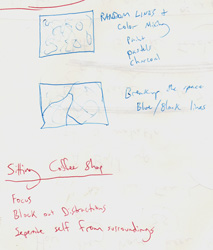 RANDOM LINES +
Color Mixing
Paint
pastels
charcoal
Break up the space
Blue/Black lines
Sitting Coffee Shop
Focus
Block out Distractions
Seperate self from surroundings